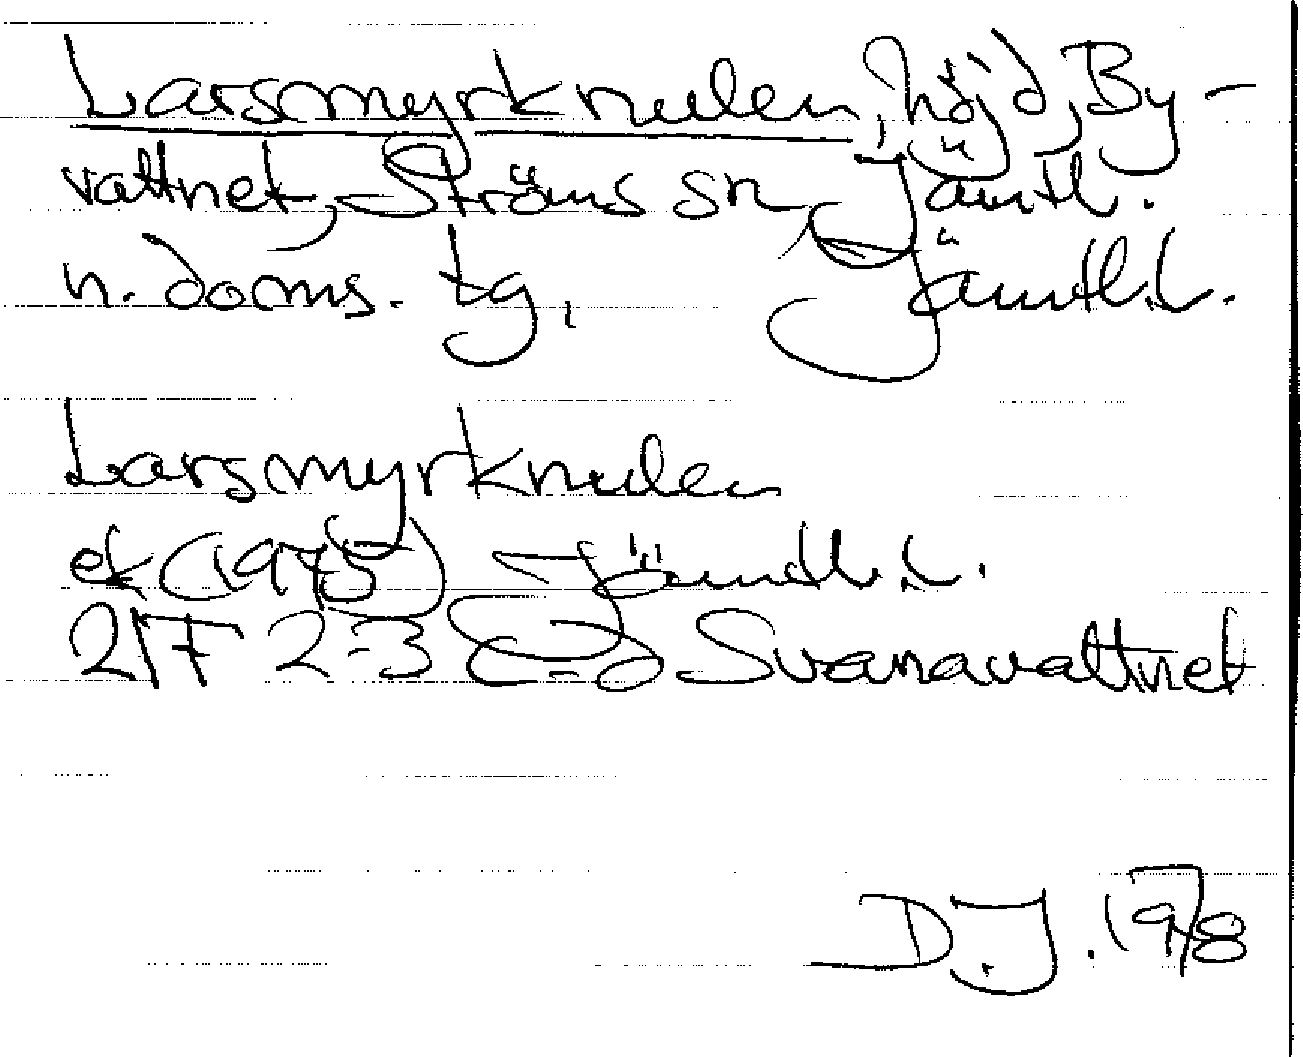 Larsmyrknulen, höjd, By-
vattnet, Ströms sn, Jämtl.
n. doms. tg, Jämtl.l.
Larsmyrknulen
ek (1975) Jämtl.l.
21F 2-3 c-d Svanavattnet
D.J. 1978